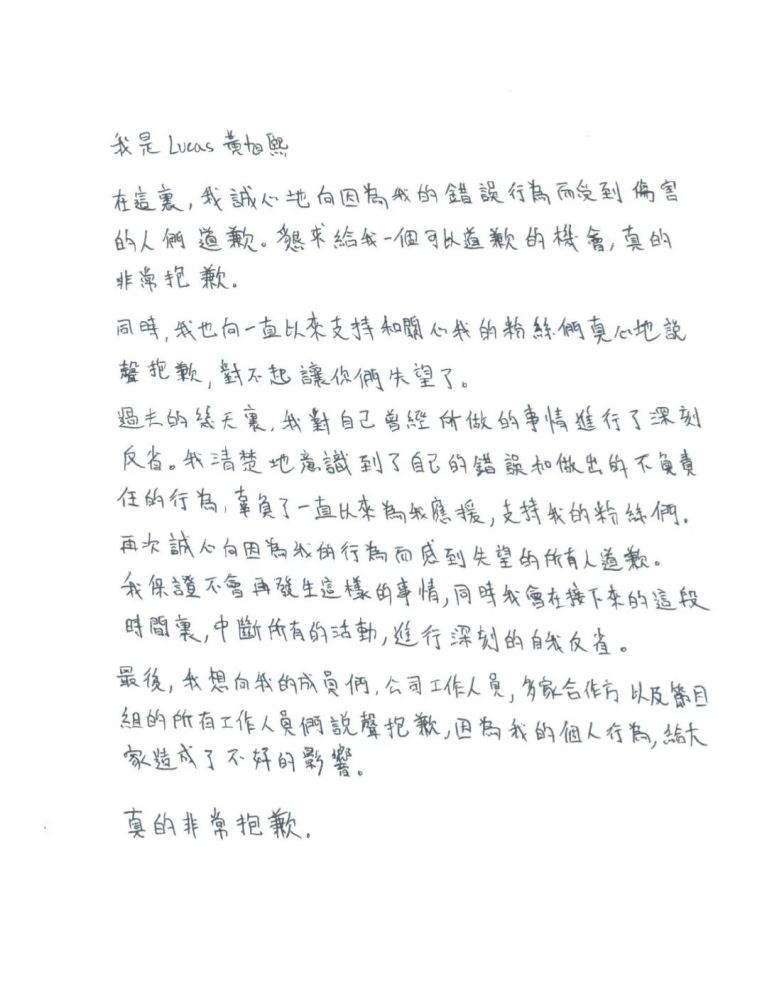 我是 Lucas 黃旭熙
在這裏，我誠心地向因為我的錯誤行為而受到傷害
的人們道歉。懇求給我一個可以道歉的機會，真的
非常抱歉.
同時，我也向一直以來支持和關心我的粉絲們真心地說
聲抱歉，對不起讓你們失望了。
過去的幾天裏，我對自己曾經所做的事情進行了深刻
反省。我清楚地意識到了自己的錯誤和做出的不負責
任的行為，辜負了一直以來為我應援，支持我的粉絲們.
再次誠心向因為我的行為而感到失望的所有人道歉。
我保證不會再發生這樣的事情，同時我會在接下來的這段
時間裏，中斷所有的活動，進行深刻的自我反省。
最後，我想向我的成員們，公司工作人員，多家合作方以及節目
組的所有工作人員們說聲抱歉，因為我的個人行為，給大
家造成了不好的影響。
真的非常抱歉.